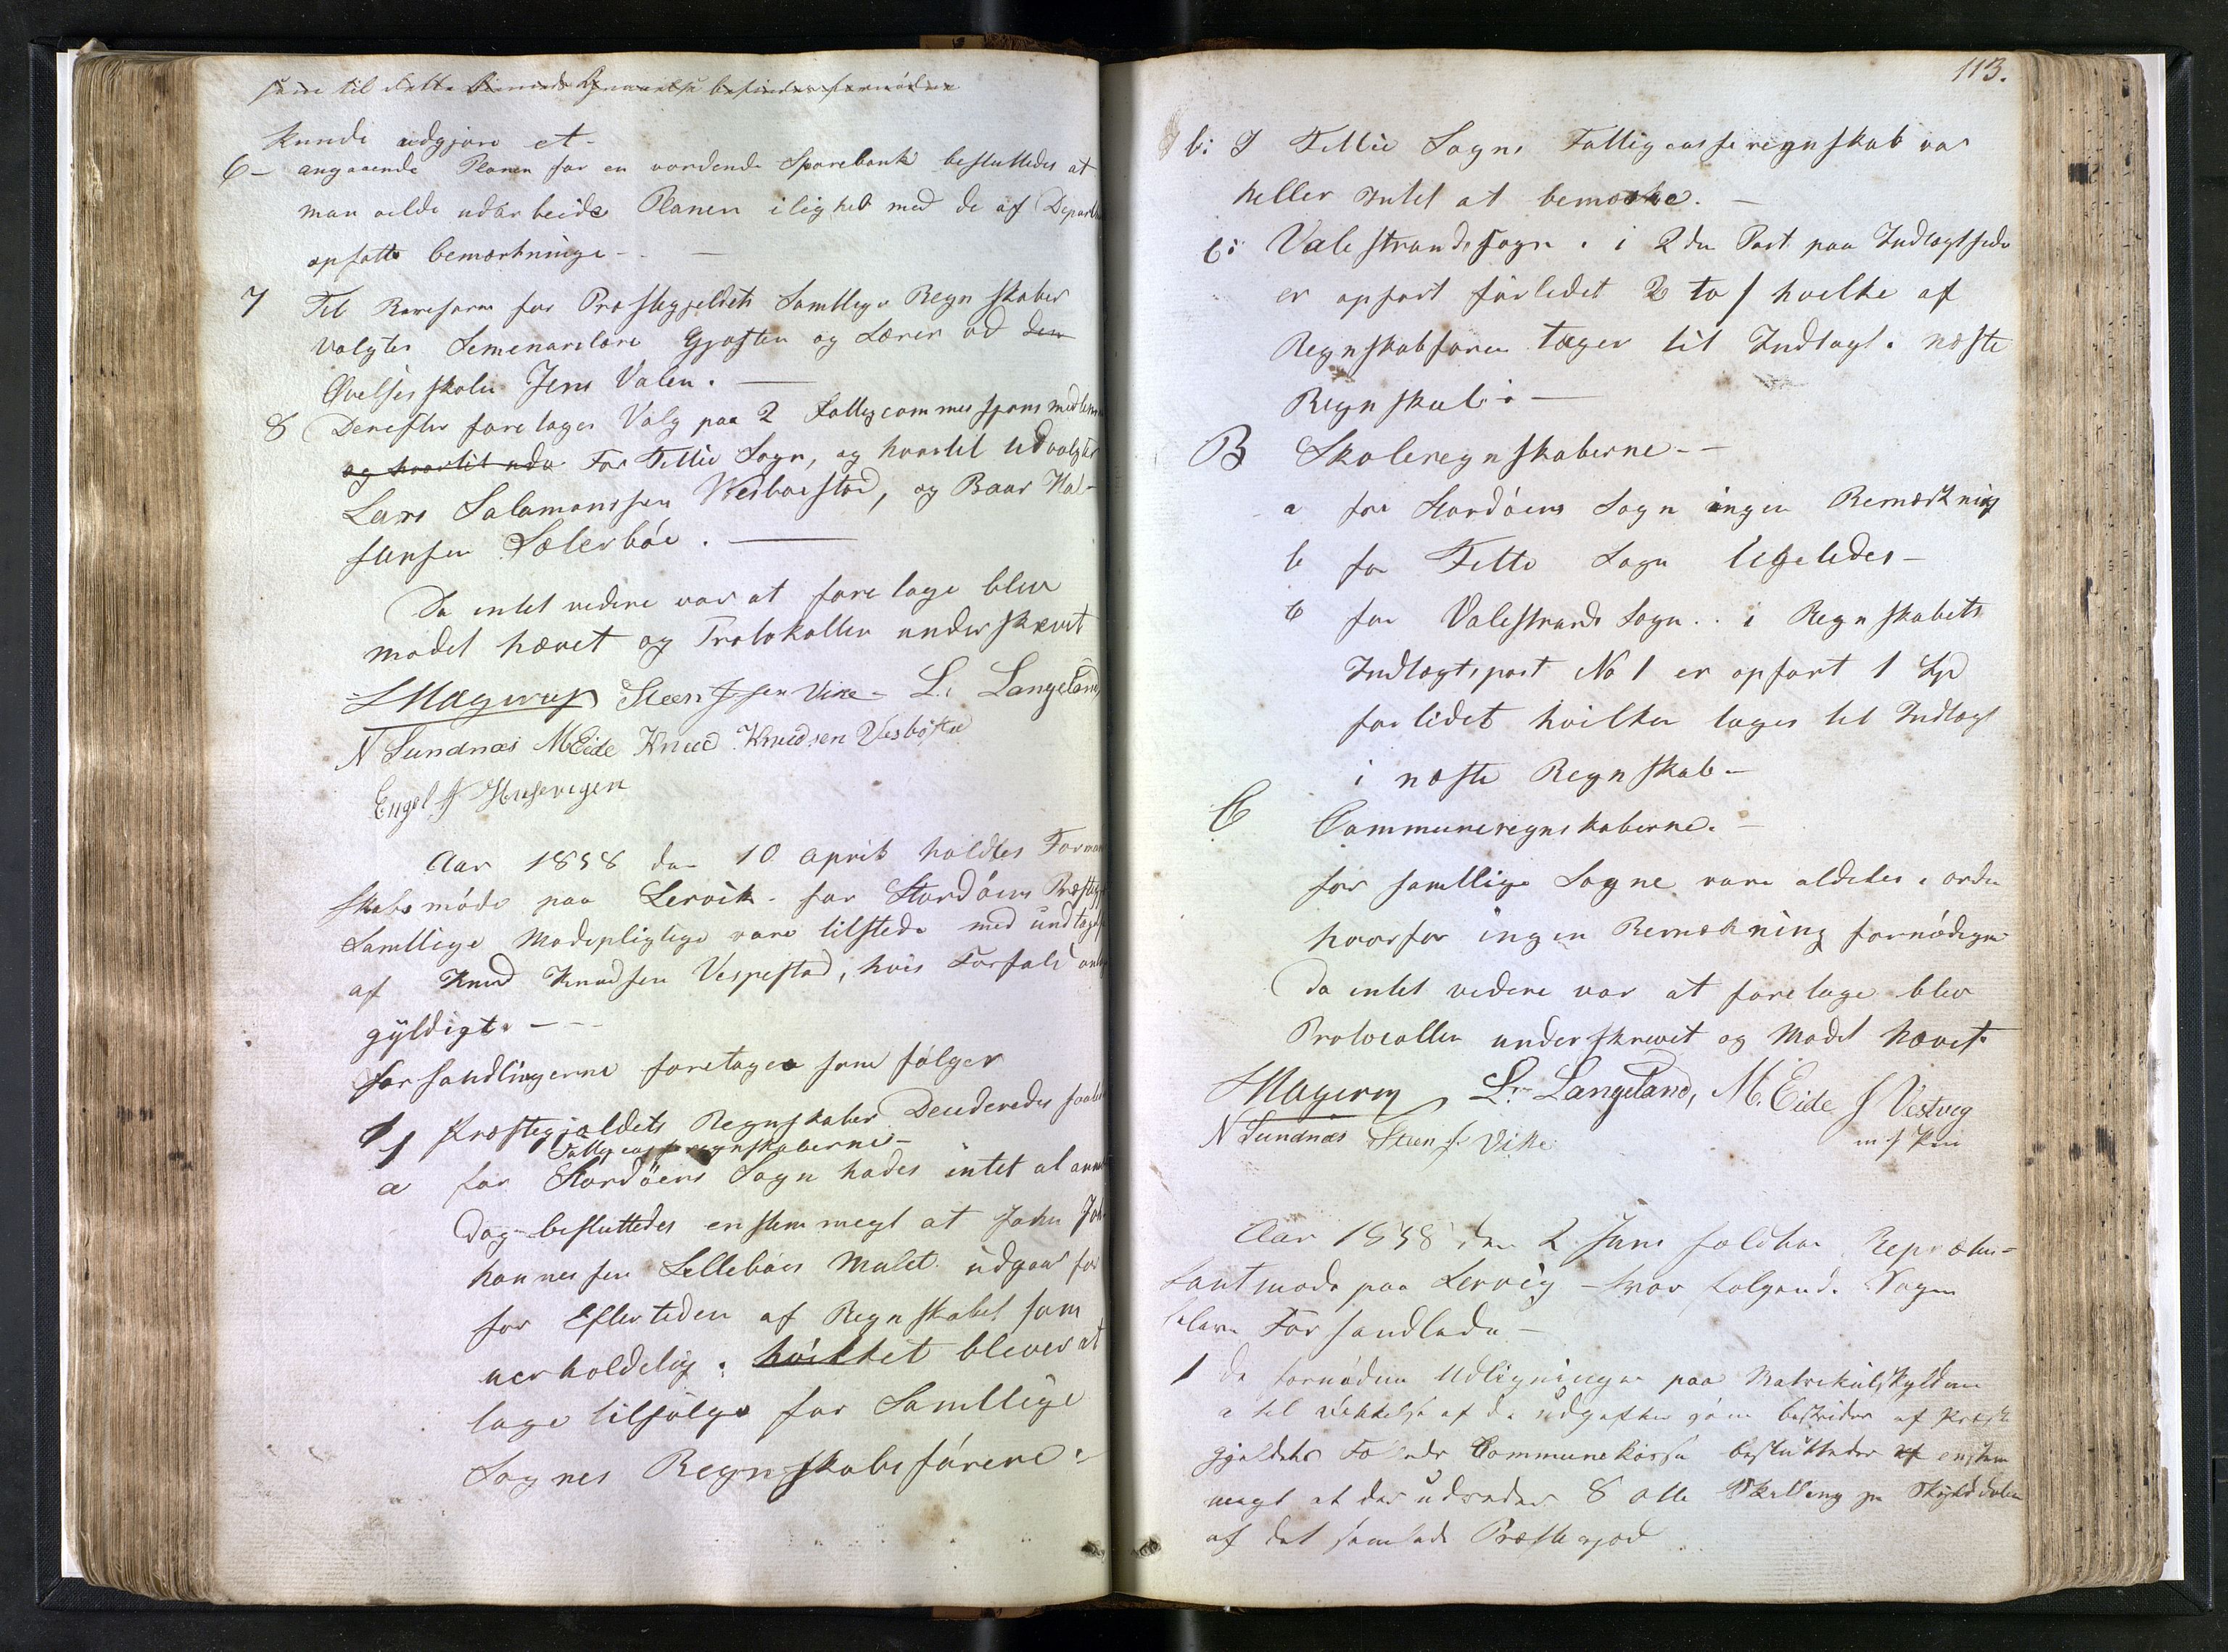 kunde udgjøre et-
6- angaaende Planen for en vordende Sparebank besluttedes at
man vilde udarbeide Planen i lighed med de af Depart
opsatte bemærkninge-
7 Til Revisorer for Præstegjeldets Samtlige Regnskaber
valgtes Semenarelærer Gjøsten og Lærer ved den
Øvelsesskolen Jens Valen.
8 Derefter foretoges Valg paa 2 Fattigcommissjons medlem
og hvortil udv For Fittie Sogn, og hvortil Udvalgtes
Lars Salamonssen Weibaestad, og Baar Hal-
sensen Sælerbøe.
Da intet videre var at foretage blev
mødet hævet og Protokollen underskrevet
Magerup Steen J.sen Vike- L. Langeland
N Sundnæs M Eide Knud Knudsen Vesbøstad
Engel J Husevigen
Aar 1858 den 10 April holdtes Forman
skabsmøde paa Lervik for Stordøens Præstegj
Samtlige Mødepligtige vare tilstede med undtagelse
af Knud Knudsen Vespestad, hvis Forfald
gyldigt.
Forhandlingerne foretoges som følger
1 Præstegjældets Regnskaber Decideredes saaledes
Fattigcasseregnskaberne-
a for Stordöens Sogn hades intet at anm
dog besluttedes enstemmigt at John Joh-
hannessen Lillebøes Mulct udgaar for
for Eftertiden af Regnskabet som
uerholdelig: hvilket bliver at
tage tilfølge for Samtlige
Sognes Regnskabsførere.
113.
b: I Fittie Sogns Fattigcasseregnskab var
heller Intet at bemærke.
c: Valestrands sogn. i 2den Post paa Indtægtside
er opført forledet 2 to / hvilke af
Regnskabsføren tages til Indtægt i næste
Regnskab.
B Skoleregnskaberne-
a for Stordöens Sogn ingen Bemærkning
b for Fitte Sogn ligeledes-
c for Valestrands Sogn.. i Regnskabets
Indtægtspost No 1 er opført 1
forlidet hvilken tages til Indtægt
i næste Regnskab-
C Communeregnskaberne.
for samtlige Sogne vare aldeles i orden
hvorfor ingen Bemærkning fornødiges
Da intet videre var at foretage blev
Protocollen underskrevet og Mødet hævet.
Magerup L. Langeland, M. Eide J Vestvig
N Sundnæs Steen J. Vike m. f. Pen
Aar 1858 den 2 Juni holdtes Repræsen-
tantmøde paa Lervig - hvor følgende Sager
bleve Forhandlede-
1 De fornødne Udligninger paa Matrikulskylden
a til dækkelse af de udgifter som bestrides af Præste
gjeldets Fælleds Communekasse besluttedes af enstem
migt at der udredes 8 otte Skilling pr Skylddaler
af det samlede Præstegjed